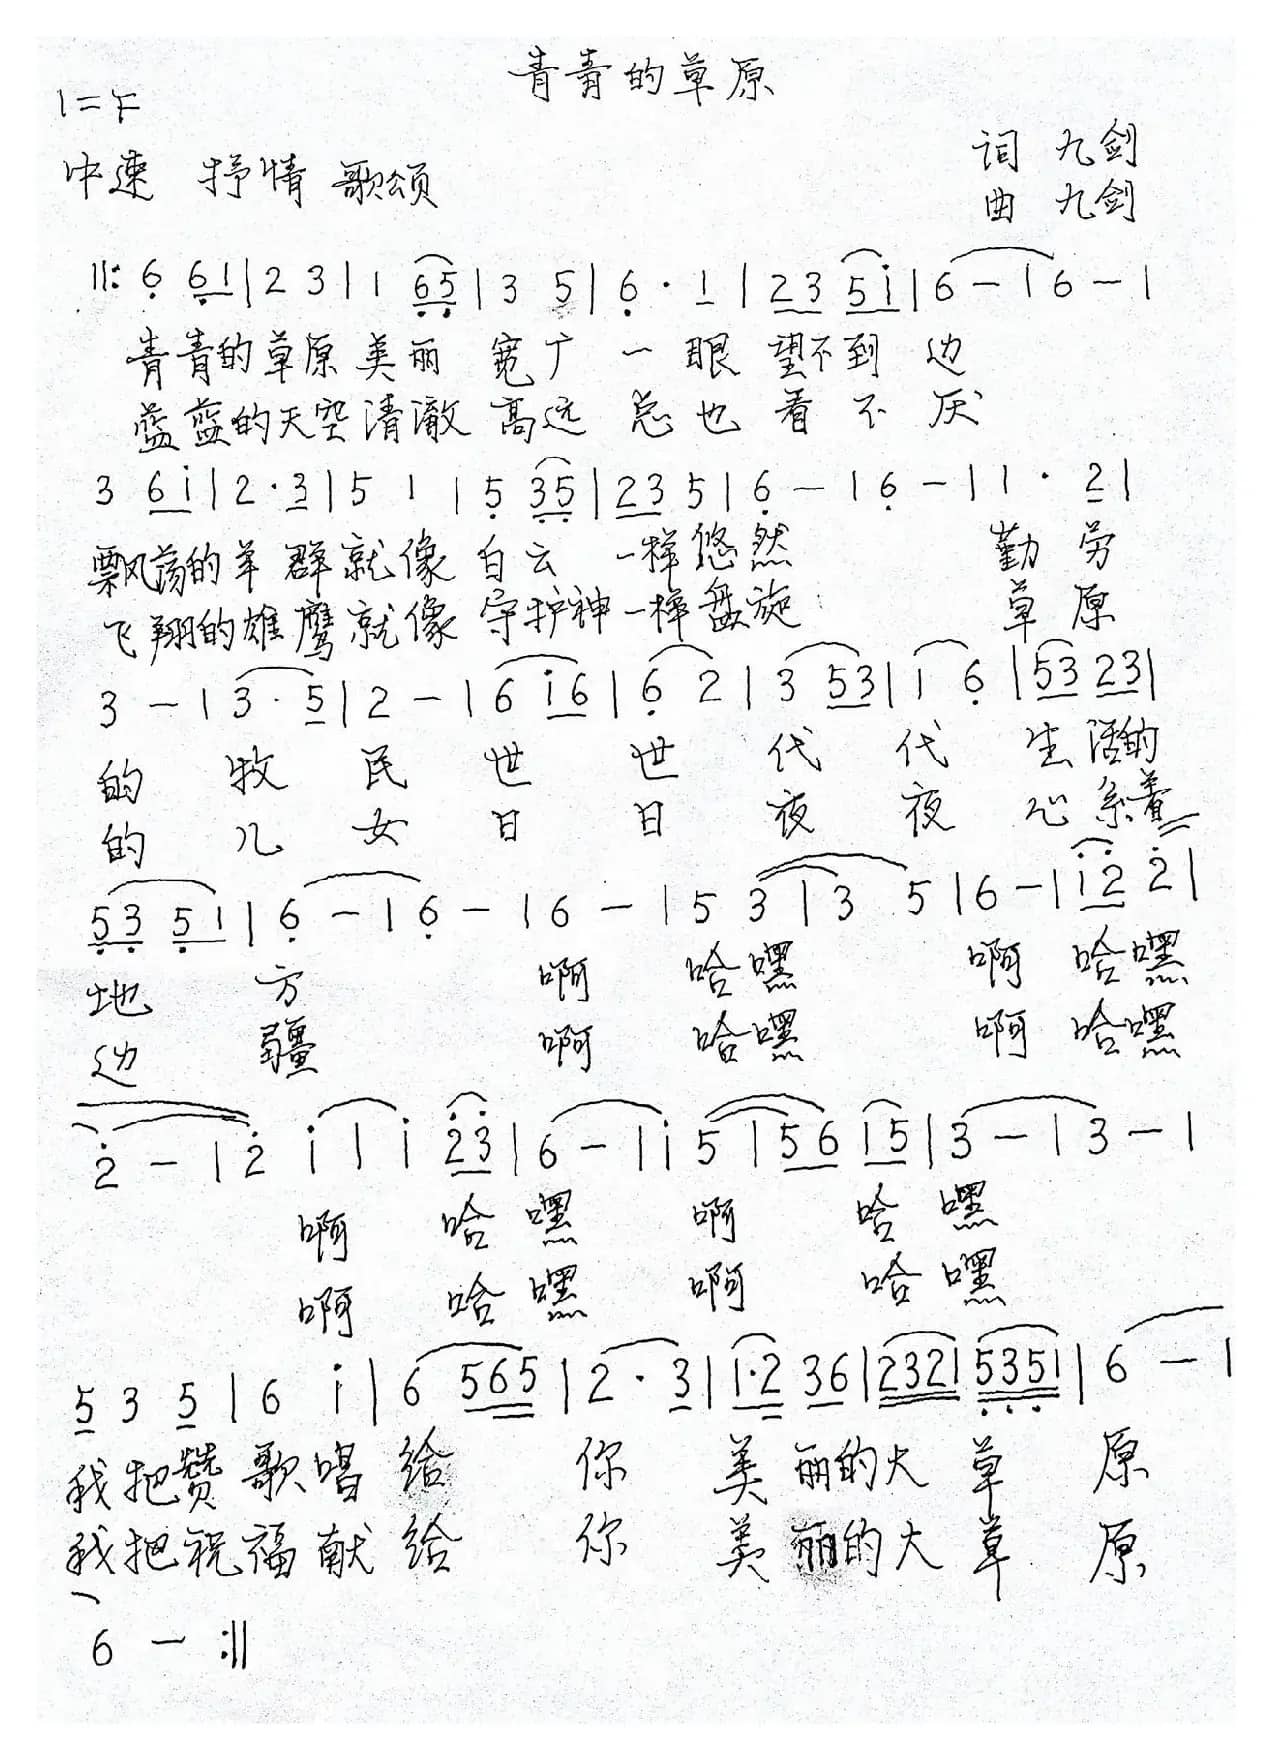 青青的草原
1=F
中速 抒情 歌颂
词 九剑
曲 九剑
||: 6̣ 6̣1 | 2 3 | 1 6̣5̣ | 3 5 | 6̣ · 1 | 23 5i | 6 — | 6 — |
青青的草原美丽 宽广 一眼 望不到 边
蓝蓝的天空清澈 高远 总也 看不厌
3 6i | 2·3 | 5 1 | 5̣ 3̣5̣ | 23 5 | 6̣ — | 6̣ — | 1 · 2 |
飘荡的羊群就像白云 一样悠然 勤劳
飞翔的雄鹰就像守护神一样盘旋 草原
3 — | 3 · 5 | 2 — | 6 i6 | 6̣ 2 | 3 53 | 1 6̣ | 53 23 |
的 牧 民 世 世 代 代 生 活的
的 儿 女 日 日 夜 夜 心 系着
5̣3̣ 5̣1 | 6̣ — | 6̣ — | 6 — | 5 3 | 3 5 | 6 — | i2̇ 2̇ |
地 方 啊 哈嘿 啊 哈嘿
边 疆 啊 哈嘿 啊 哈嘿
2̇ — | 2̇ i | i 2̇3̇ | 6 — | i 5 | 56 15 | 3 — | 3 — |
啊 哈 嘿 啊 哈 嘿
啊 哈 嘿 啊 哈 嘿
5 3 5 | 6 i | 6 565 | 2 · 3 | 1·2 36 | 2321 5̣3̣5̣1 | 6 — |
我把赞歌唱给 你 美丽的大草 原
我把祝福献给 你 美丽的大草 原
6 — :||